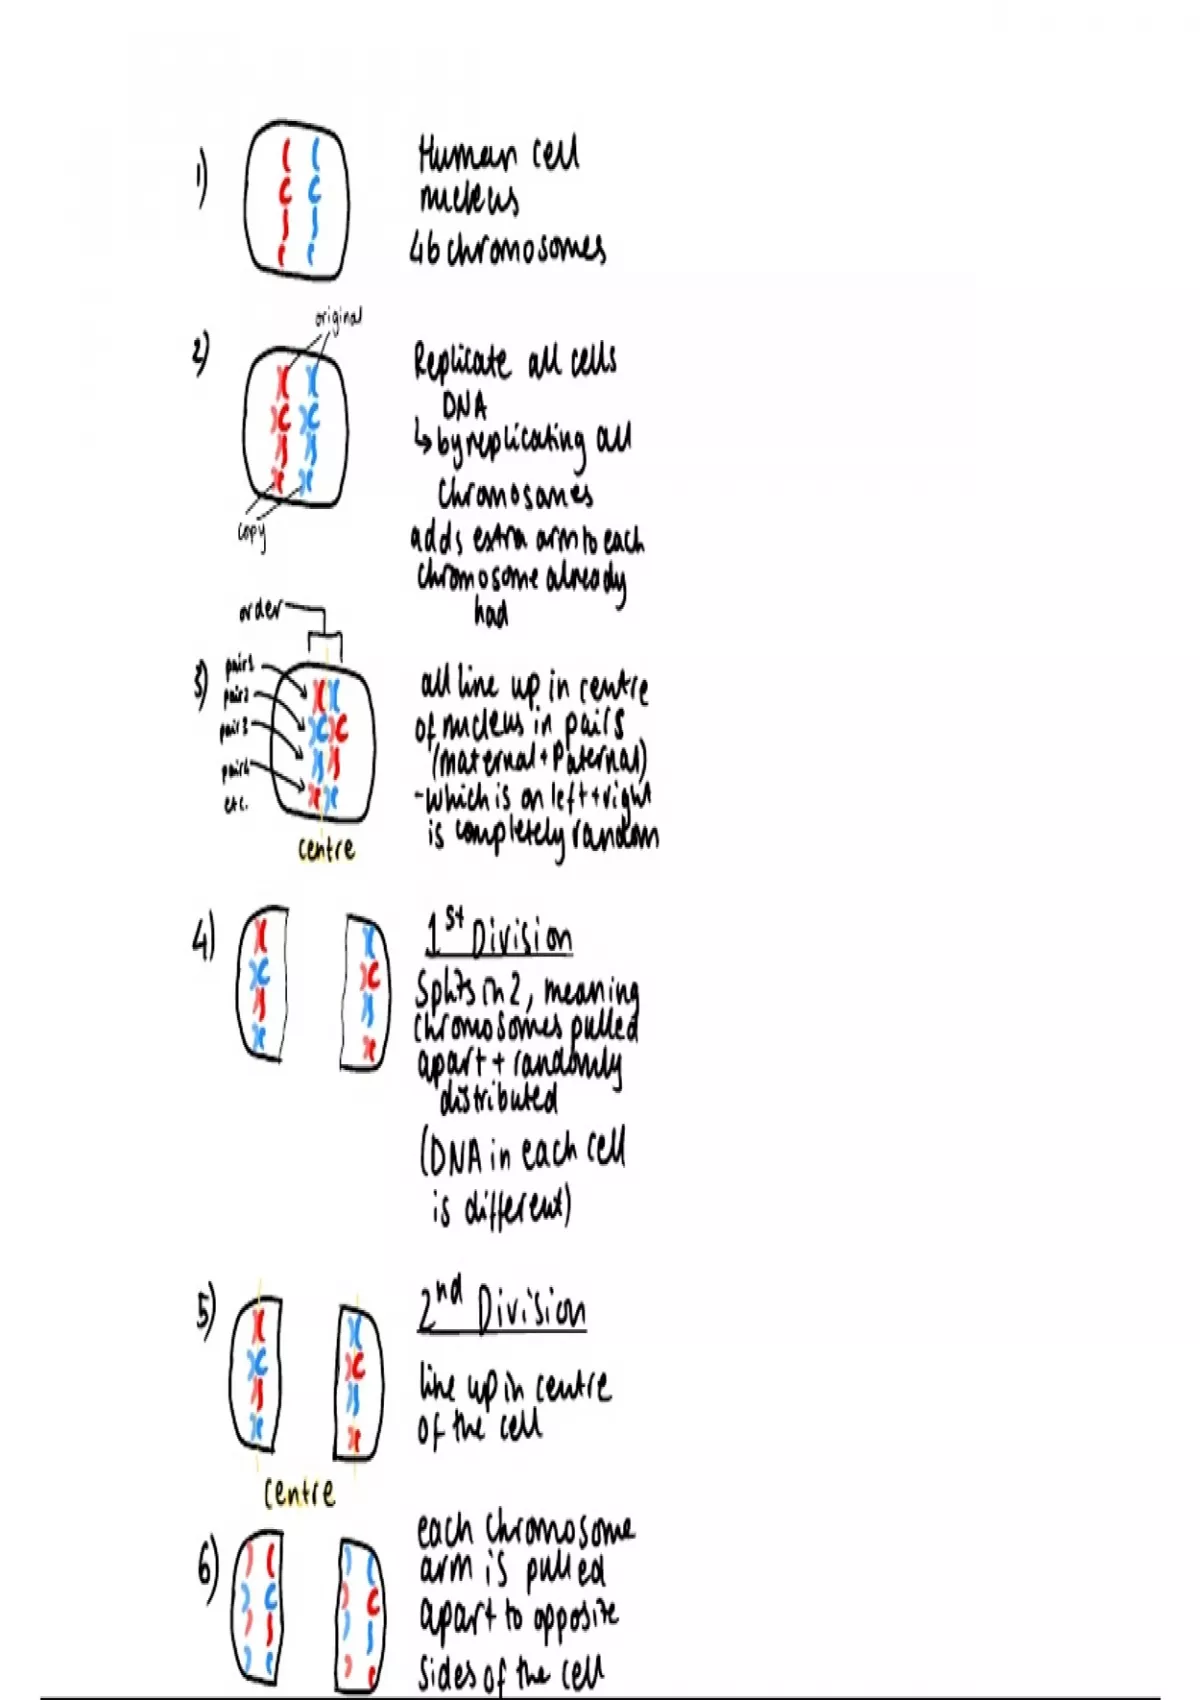 1)
Human cell
nucleus
46 chromosomes
original
2)
Replicate all cells
DNA
↳ by replicating all
chromosomes
copy
adds extra arm to each
chromosome already
had
order
3)
pair 1
pair 2
pair 3
pair 4
etc.
centre
all line up in centre
of nucleus in pairs
(maternal + Paternal)
- which is on left + right
is completely random
4)
1st Division
Splits in 2, meaning
chromosomes pulled
apart + randomly
distributed
(DNA in each cell
is different)
5)
2nd Division
line up in centre
of the cell
centre
6)
each chromosome
arm is pulled
apart to opposite
sides of the cell